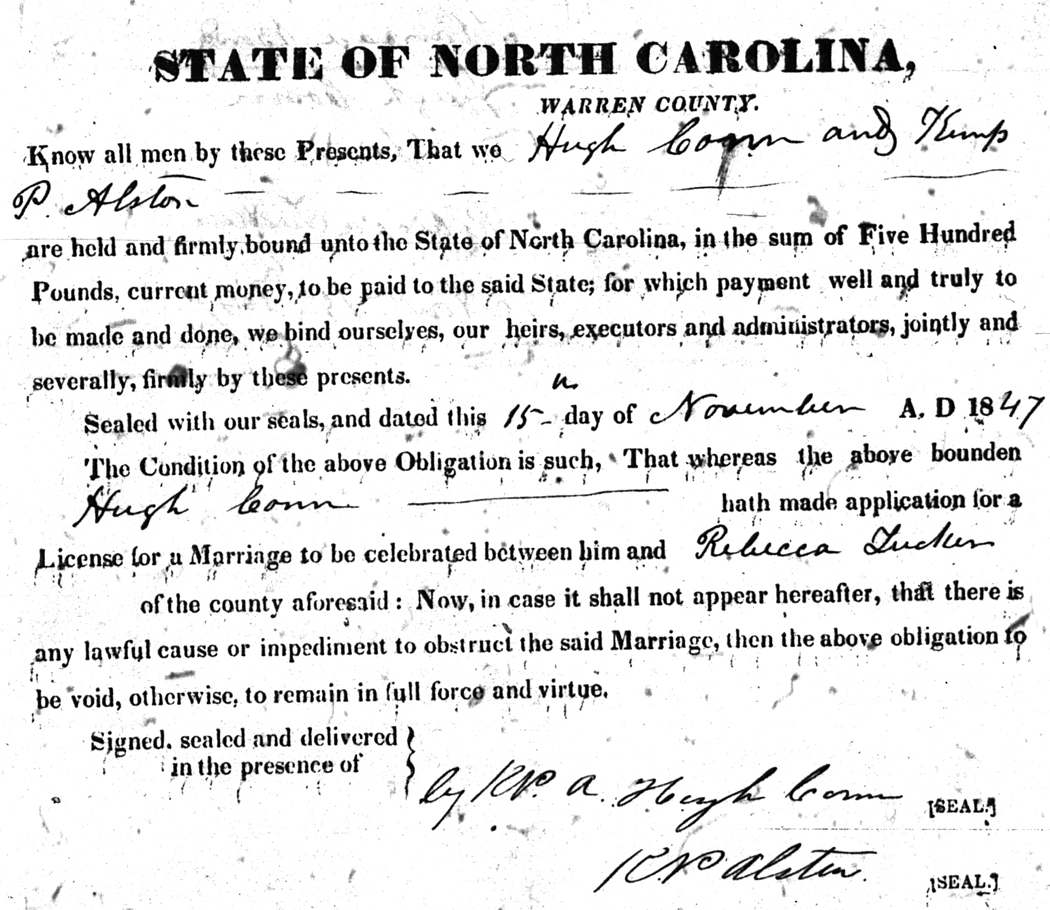 STATE OF NORTH CAROLINA,
WARREN COUNTY.
Know all men by these Presents, That we Hugh Conn and Kemp
P. Alston
are held and firmly bound unto the State of North Carolina, in the sum of Five Hundred
Pounds, current money, to be paid to the said State; for which payment well and truly to
be made and done, we bind ourselves, our heirs, executors and administrators, jointly and
severally, firmly by these presents.
Sealed with our seals, and dated this 15th day of November A. D 1847
The Condition of the above Obligation is such, That whereas the above bounden
Hugh Conn hath made application for a
License for a Marriage to be celebrated between him and Rebecca Tucker
of the county aforesaid: Now, in case it shall not appear hereafter, that there is
any lawful cause or impediment to obstruct the said Marriage, then the above obligation to
be void, otherwise, to remain in full force and virtue.
Signed, sealed and delivered
in the presence of
by K.P. A. Hugh Conn [SEAL.]
K P Alston. [SEAL.]